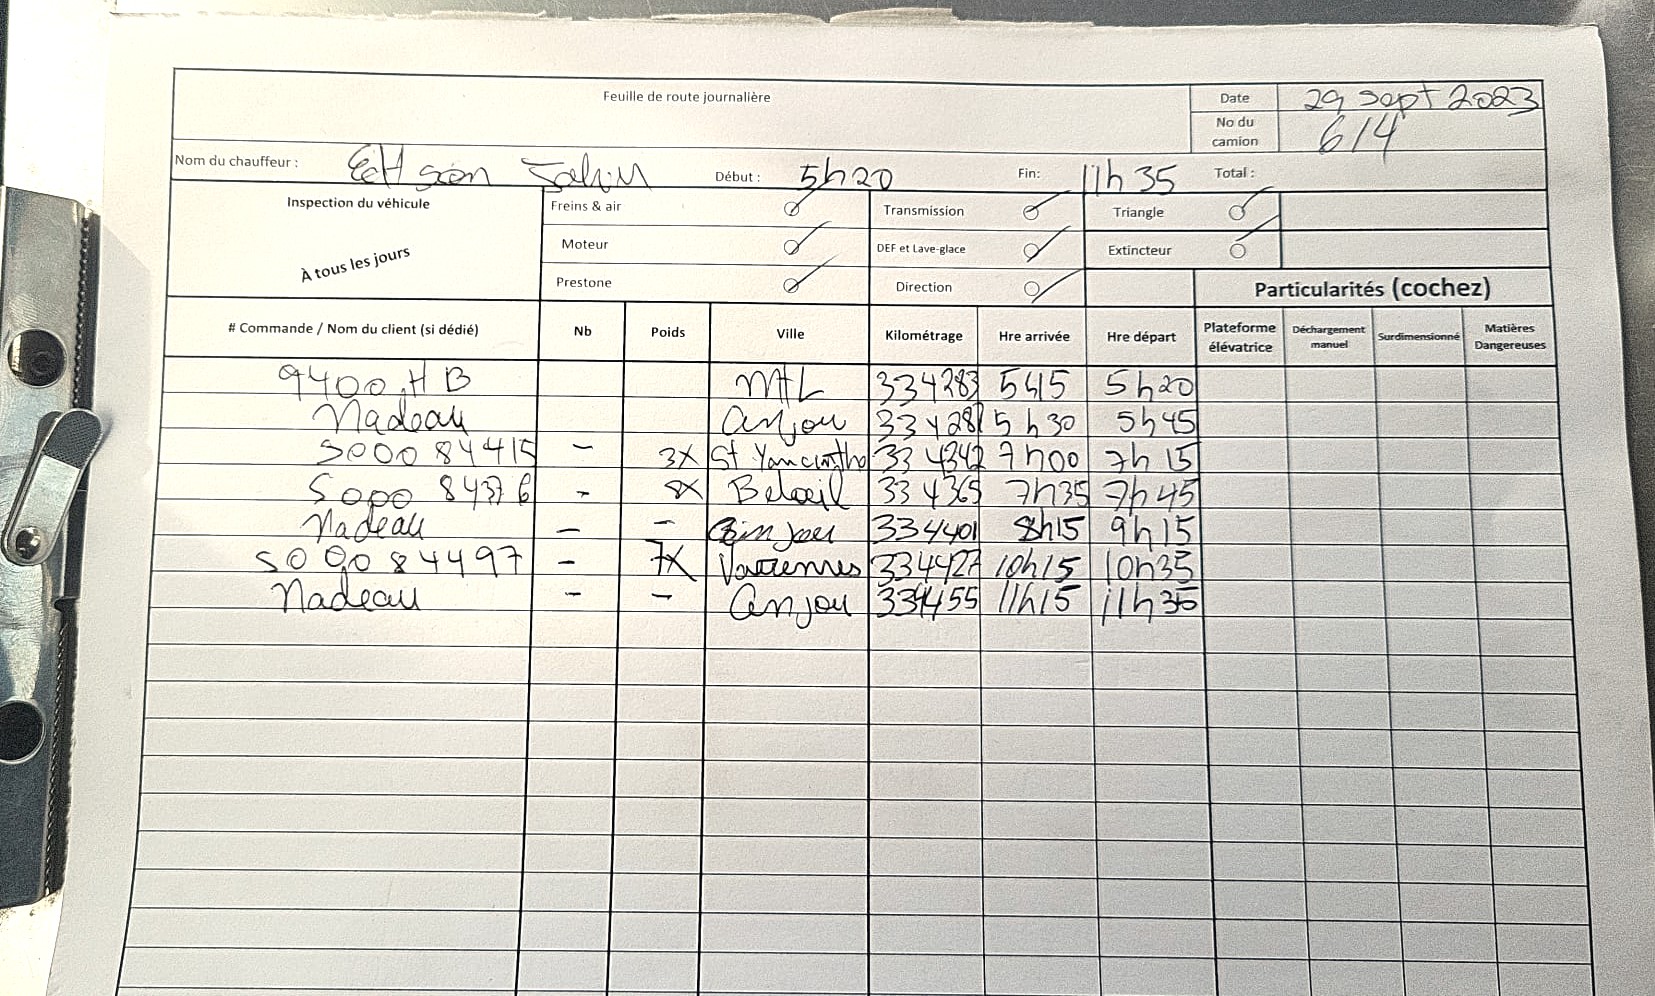 Feuille de route journalière
Date 29 sept 2023
No du camion 614
Nom du chauffeur : Début : 5h20 Fin: 11h35 Total :
Inspection du véhicule
À tous les jours
Freins & air Transmission Triangle
Moteur DEF et Lave-glace Extincteur
Prestone Direction
Particularités (cochez)
# Commande / Nom du client (si dédié) Nb Poids Ville Kilométrage Hre arrivée Hre départ Plateforme élévatrice Déchargement manuel Surdimensionné Matières Dangereuses
9400 HB MtL 334283 5h15 5h20
Nadeau Anjou 5h30 5h45
500084415 - 3X St Yancintho 334342 7h00 7h15
500084376 - 8X Beloeil 334365 7h35 7h45
Nadeau - - Anjou 334401 8h15 9h15
500084497 - 7X Varennes 334427 10h15 10h35
Nadeau - - Anjou 334455 11h15 11h35